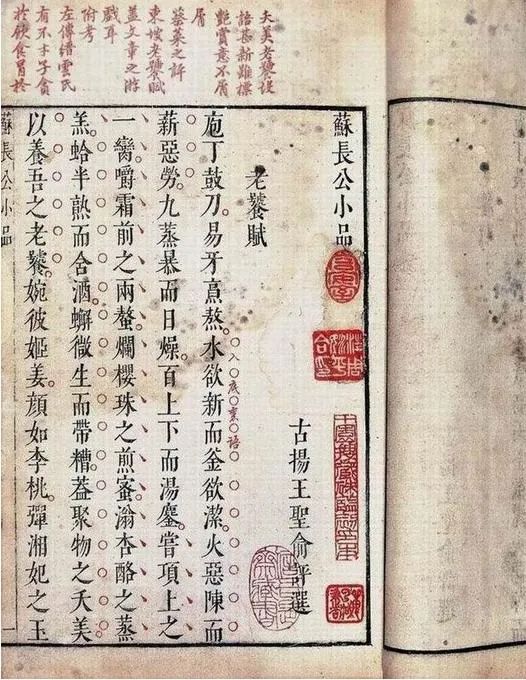 語甚新雖標
艷賞意不屑
屑
東坡老饕賦
蓋文章之游
戲耳
附考
左傳縉雲氏
有不才子貪
於飲食冒於
蘇長公小品
古揚王聖俞評選
老饕賦
庖丁鼓刀易牙亯熬水欲新而釜欲潔火惡陳而
薪惡勞九蒸暴而日燥百上下而湯鏖嘗項上之
一臠嚼霜前之兩螯爛櫻珠之煎蜜滃杏酪之蒸
羔蛤半熟而含酒蠏微生而帶糟葢聚物之夭美
以養吾之老饕婉彼姬姜顏如李桃彈湘妃之玉
蘇長公小品